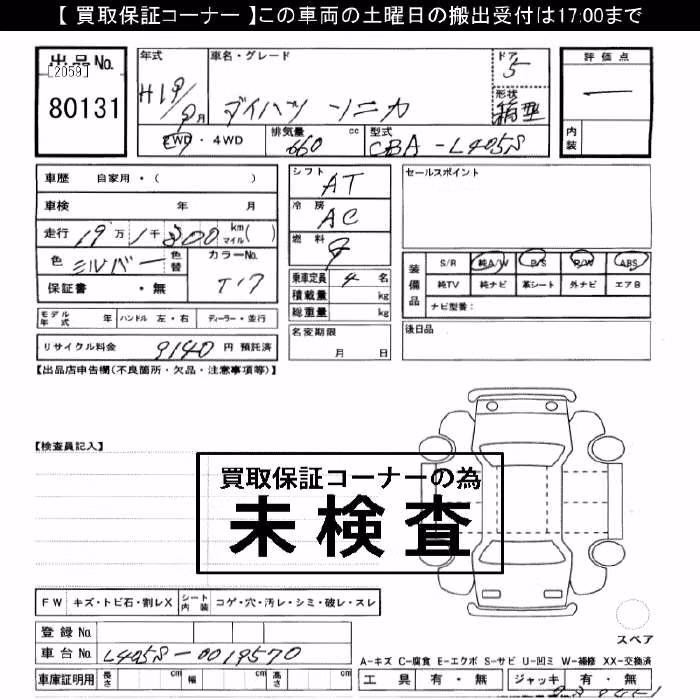 【 買取保証コーナー 】この車両の土曜日の搬出受付は17:00まで
出品No.
[2059]
80131
年式
H19/9月
車名・グレード
ダイハツ ソニカ
ドア
5
形状
箱型
2WD・4WD
排気量 cc
660
型式
CBA-L405S
評価点
内装
車歴 自家用・( )
車検 年 月
走行 19万1千800 km マイル( )
色 シルバー 色替
カラーNo.
T17
保証書 ・無
シフト
AT
冷房
AC
燃料
乗車定員 4 名
積載量 kg
総重量 kg
セールスポイント
装備品
S/R 純A/W P/S P/W ABS
純TV 純ナビ 革シート 外ナビ エアB
ナビ型番:
モデル年式 年 ハンドル 左・右 ディーラー・並行
リサイクル料金 9140 円 預託済
名変期限
月 日
後日品
【出品店申告欄(不良箇所・欠品・注意事項等)】
【検査員記入】
買取保証コーナーの為
未検査
FW キズ・トビ石・割レX シート内装 コゲ・穴・汚レ・シミ・破レ・スレ
スペア
登録No.
車台No. L405S-0019570
車庫証明用 長さ cm 幅 cm 高さ cm
A-キズ C-腐食 E-エクボ S-サビ U-凹ミ W-補修 XX-交換済
工具 有・無 ジャッキ 有・無